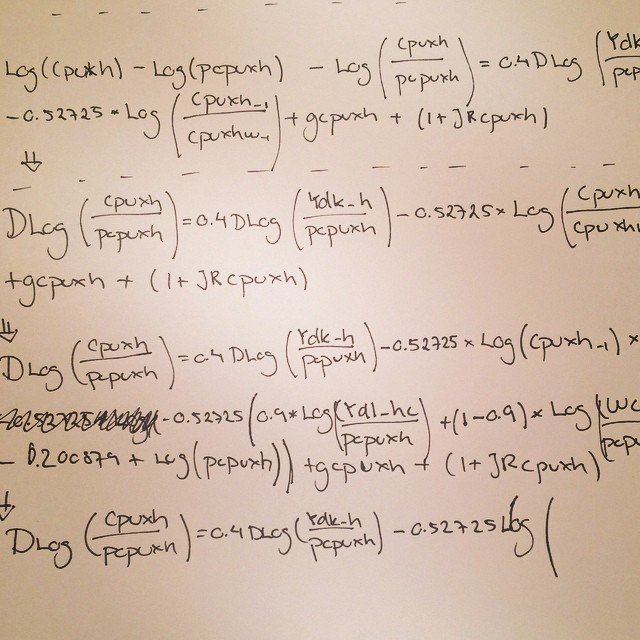 Log(Cpuxh) - Log(pcpuxh) - Log(cpuxh/pcpuxh) = 0.4 DLog (Ydk
-0.52725 * Log (Cpuxh-1/cpuxhw-1) + gcpuxh + (1 + JRcpuxh)
⇓
DLog (cpuxh/pcpuxh) = 0.4 DLog (Ydk-h/pcpuxh) - 0.52725 * Log (cpuxh/cpuxh
+ gcpuxh + (1 + JRcpuxh)
⇓
DLog (cpuxh/pcpuxh) = 0.4 DLog (Ydk-h/pcpuxh) - 0.52725 * Log (cpuxh-1) *
-0.52725 (0.9 * Log (Ydl-hc/pcpuxh) + (1-0.9) * Log (wc/pcpu
- 0.200879 + Log (pcpuxh)) + gcpuxh + (1 + JRcpuxh)
⇓
DLog (cpuxh/pcpuxh) = 0.4 DLog (Ydk-h/pcpuxh) - 0.52725 Log (